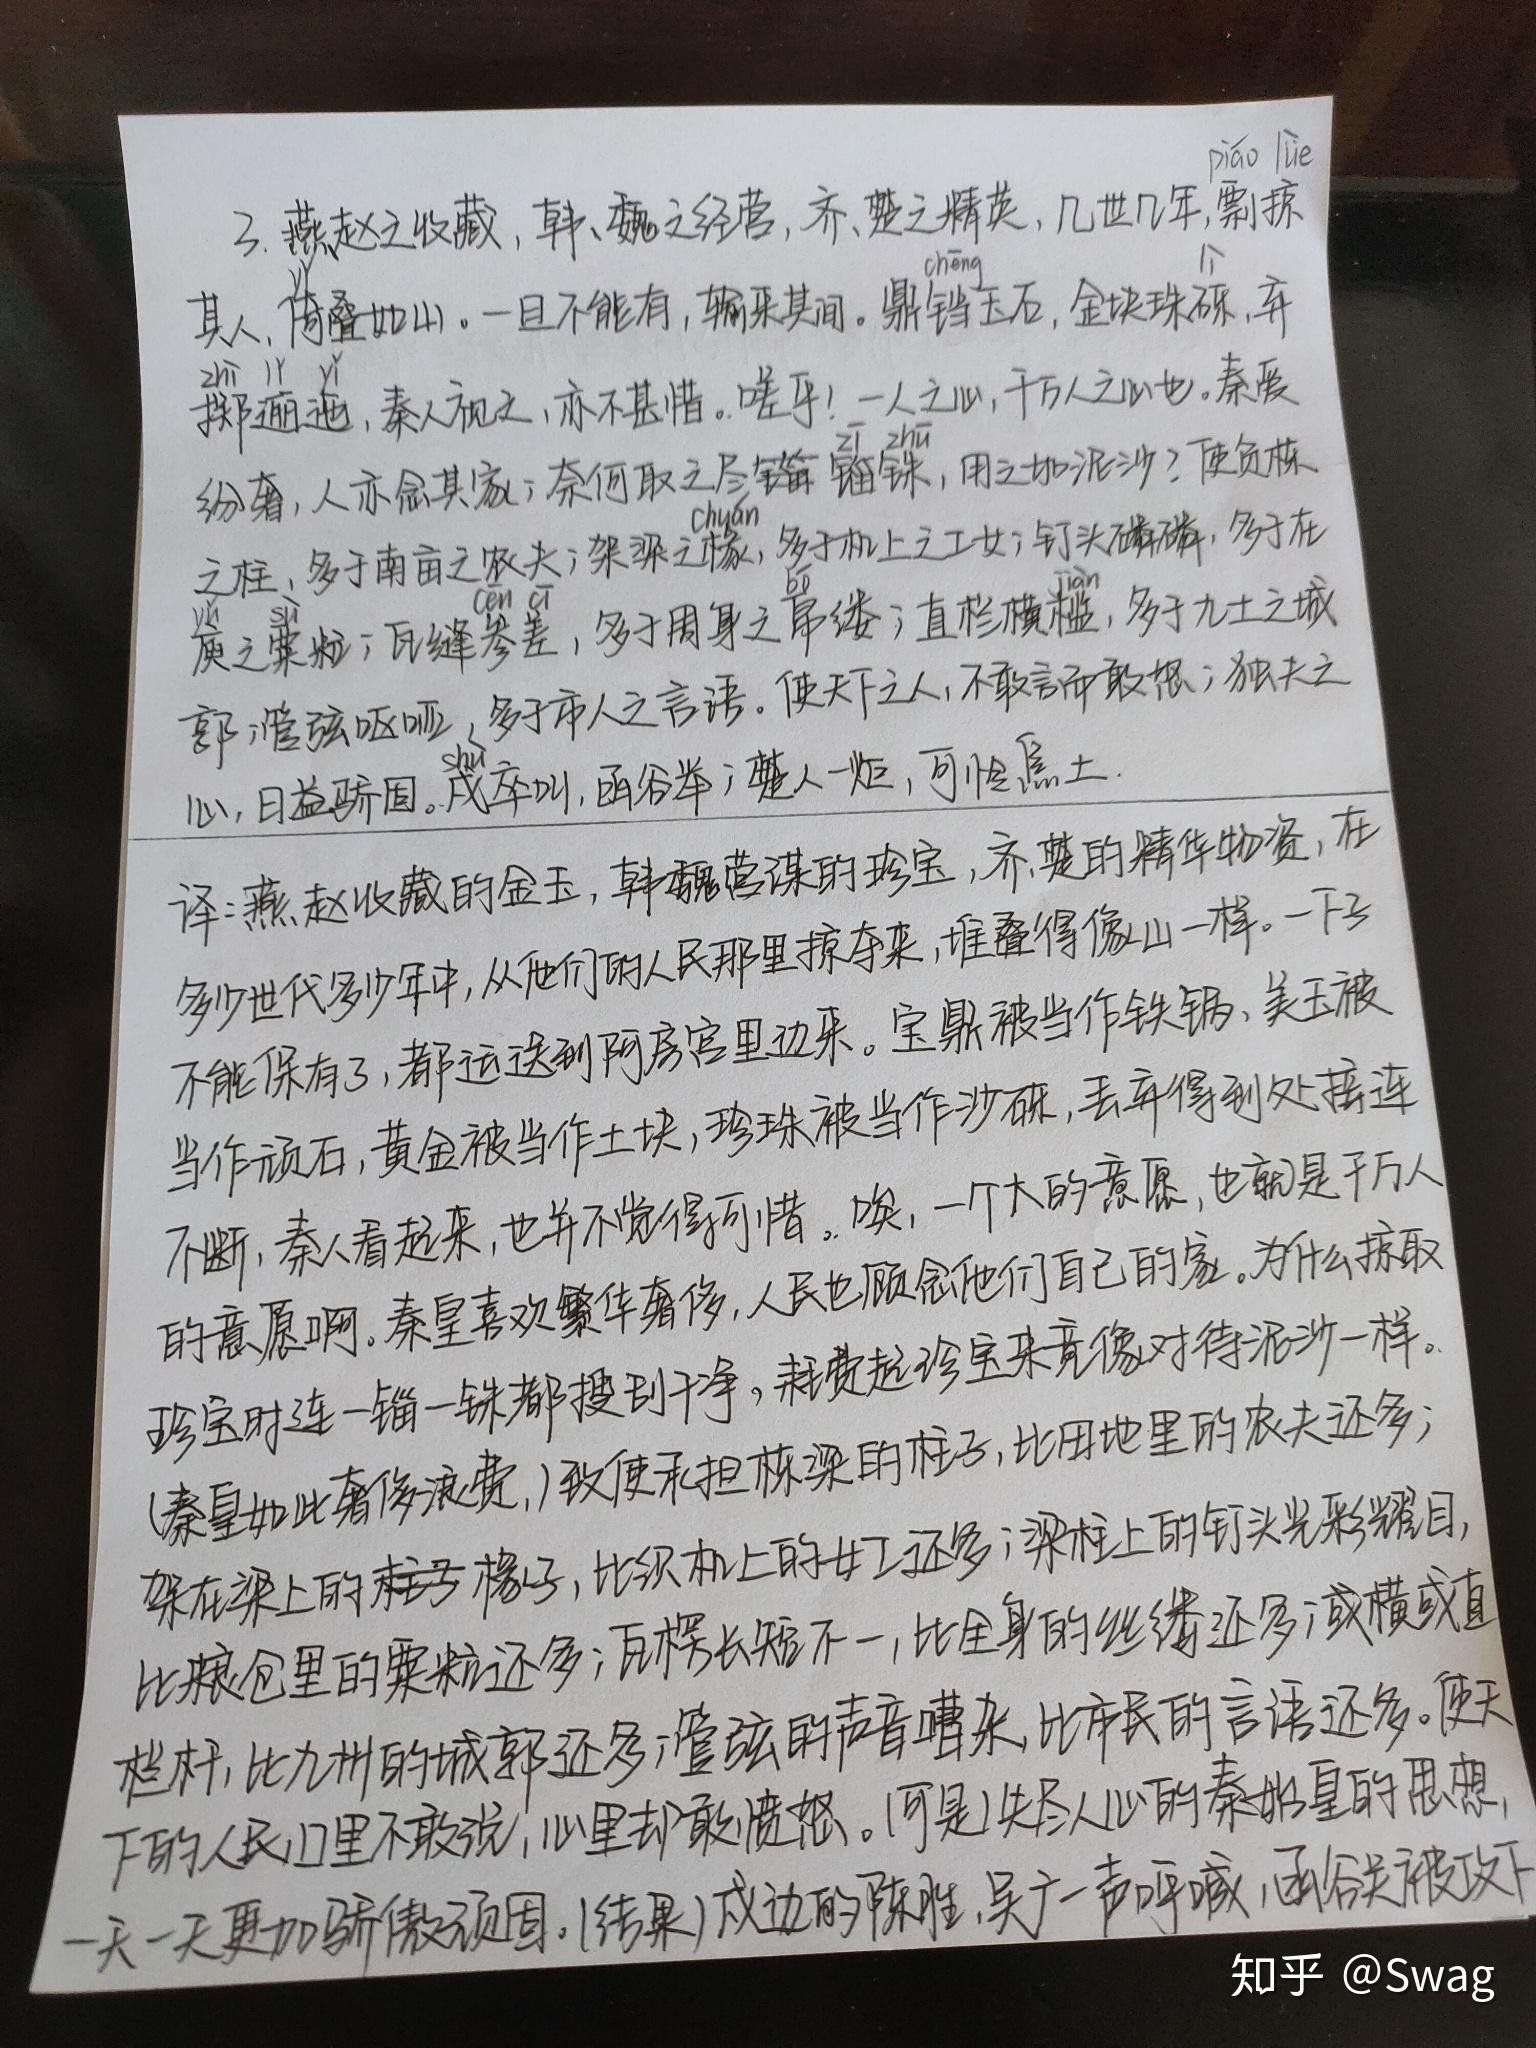 piáo lüè
3. 燕赵之收藏，韩、魏之经营，齐、楚之精英，几世几年，剽掠
yǐ chēng lì
其人，倚叠如山。一旦不能有，输来其间。鼎铛玉石，金块珠砾，弃
zhì lǐ yǐ
掷逦迤，秦人视之，亦不甚惜。嗟乎！一人之心，千万人之心也。秦爱
zī zhū
纷奢，人亦念其家；奈何取之尽锱铢，用之如泥沙？使负栋
chuán
之柱，多于南亩之农夫；架梁之椽，多于机上之工女；钉头磷磷，多于在
yǔ sù cēn cī bó jiàn
庾之粟粒；瓦缝参差，多于周身之帛缕；直栏横槛，多于九土之城
郭；管弦呕哑，多于市人之言语。使天下之人，不敢言而敢怒；独夫之
shù
心，日益骄固。戍卒叫，函谷举；楚人一炬，可怜焦土.
译：燕赵收藏的金玉，韩魏营谋的珍宝，齐、楚的精华物资，在
多少世代多少年中，从他们的人民那里掠夺来，堆叠得像山一样。一下子
不能保有了，都运送到阿房宫里边来。宝鼎被当作铁锅、美玉被
当作顽石，黄金被当作土块，珍珠被当作沙砾，丢弃得到处接连
不断，秦人看起来，也并不觉得可惜。唉，一个人的意愿，也就是千万人
的意愿啊。秦皇喜欢繁华奢侈，人民也顾念他们自己的家。为什么掠取
珍宝时连一锱一铢都搜刮干净，耗费起珍宝来竟像对待泥沙一样。
(秦皇如此奢侈浪费，)致使承担栋梁的柱子，比田地里的农夫还多；
架在梁上的椽子，比织机上的女工还多；梁柱上的钉头光彩耀目，
比粮仓里的粟粒还多；瓦楞长短不一，比全身的丝缕还多；或横或直
栏杆，比九州的城郭还多；管弦的声音嘈杂，比市民的言语还多。使天
下的人民，口里不敢说，心里却敢愤怒。(可是)失尽人心的秦始皇的思想，
一天一天更加骄傲顽固。(结果)戍边的陈胜、吴广一声呼喊，函谷关被攻下
知乎 @Swag